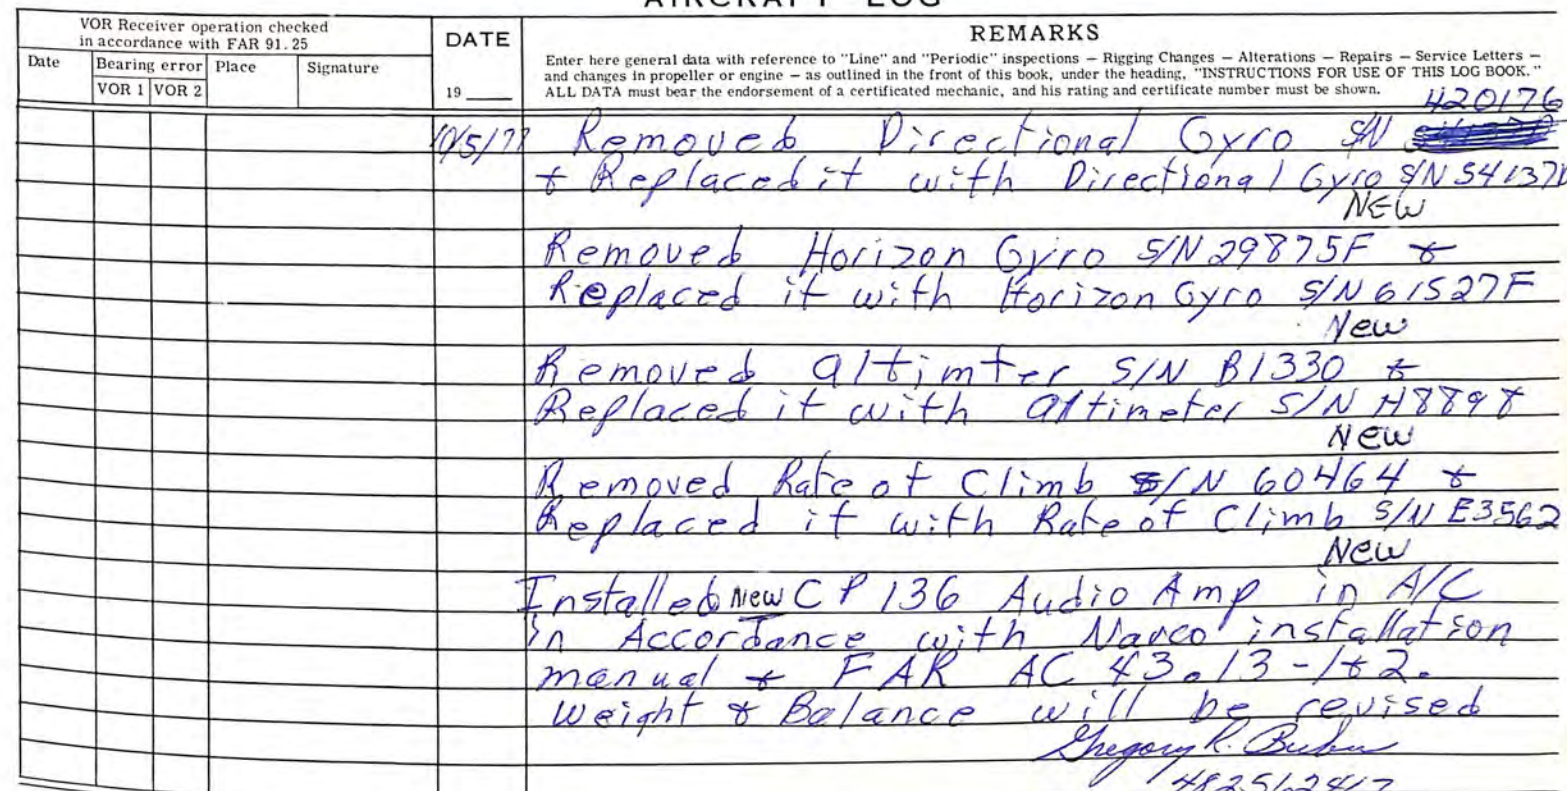 AIRCRAFT LOG
VOR Receiver operation checked
in accordance with FAR 91.25
Date
Bearing error
VOR 1 VOR 2
Place
Signature
DATE
19
REMARKS
Enter here general data with reference to "Line" and "Periodic" inspections — Rigging Changes — Alterations — Repairs — Service Letters —
and changes in propeller or engine — as outlined in the front of this book, under the heading, "INSTRUCTIONS FOR USE OF THIS LOG BOOK."
ALL DATA must bear the endorsement of a certificated mechanic, and his rating and certificate number must be shown.
420176
10/5/77 Removed Directional Gyro S/N
& Replaced it with Directional Gyro S/N
NEW
Removed Horizon Gyro S/N 29875F &
Replaced it with Horizon Gyro S/N 61527F
New
Removed altimter S/N B1330 &
Replaced it with altimeter S/N H8898
New
Removed Rate of Climb S/N 60464 &
Replaced it with Rate of Climb S/N E3562
New
Installed New CP 136 Audio Amp in A/C
in Accordance with Narco installation
manual & FAR AC 43.13-1&2.
Weight & Balance will be revised
Gregory R.